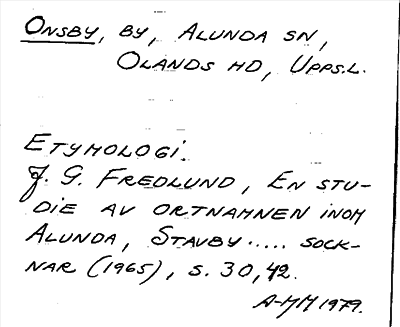 Onsby, by, Alunda sn,
Olands hd, Upps.l.
Etymologi.
J. G. Fredlund, En stu-
die av ortnamnen inom
Alunda, Stavby ..... sock-
nar (1965), s. 30, 42.
A-MM 1979.